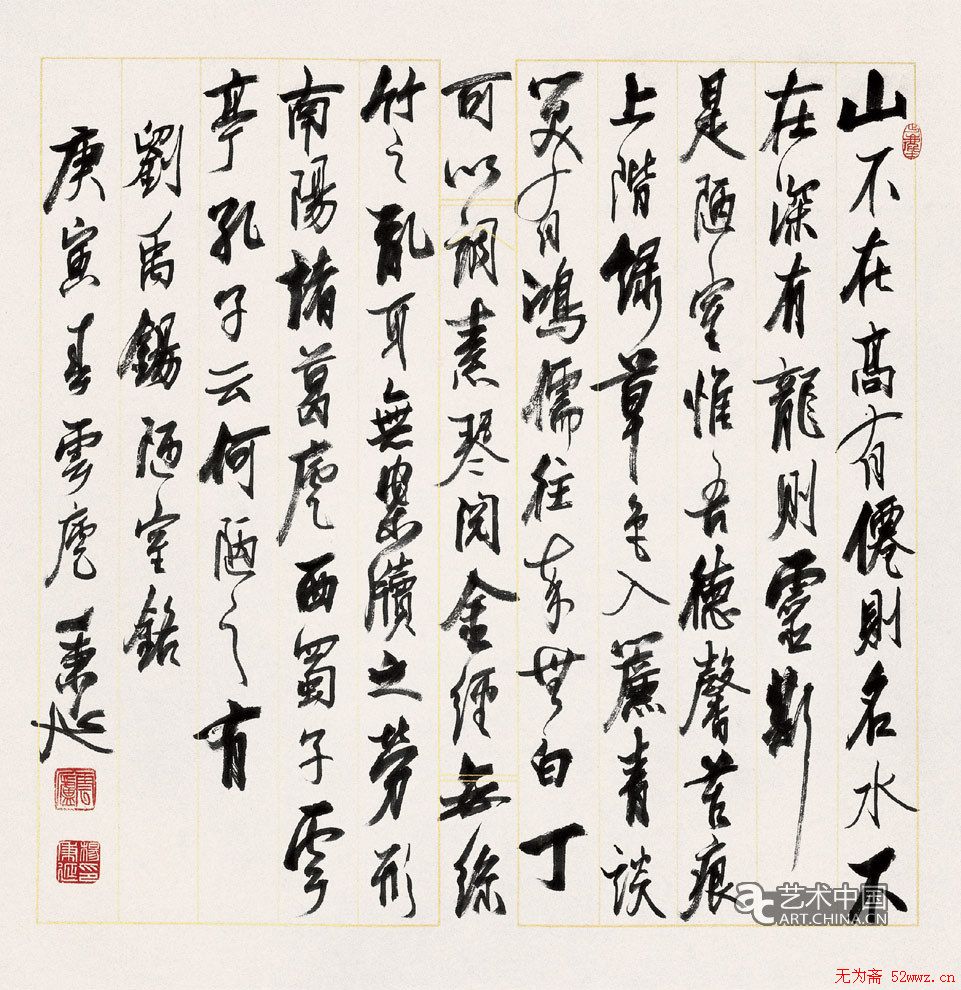 山不在髙有僊則名水不
在深有龍則靈斯
是陋室惟吾德馨苔痕
上階緑草色入簾青談
笑有鴻儒往来無白丁
可以調素琴閲金經無絲
竹之亂耳無案牘之勞形
南陽諸葛廬西蜀子雲
亭孔子云何陋之有
劉禹錫陋室銘
庚寅春雲廬秉延
雲廬
艺术中国
ART.CHINA.CN
无为斋 52wwz.cn